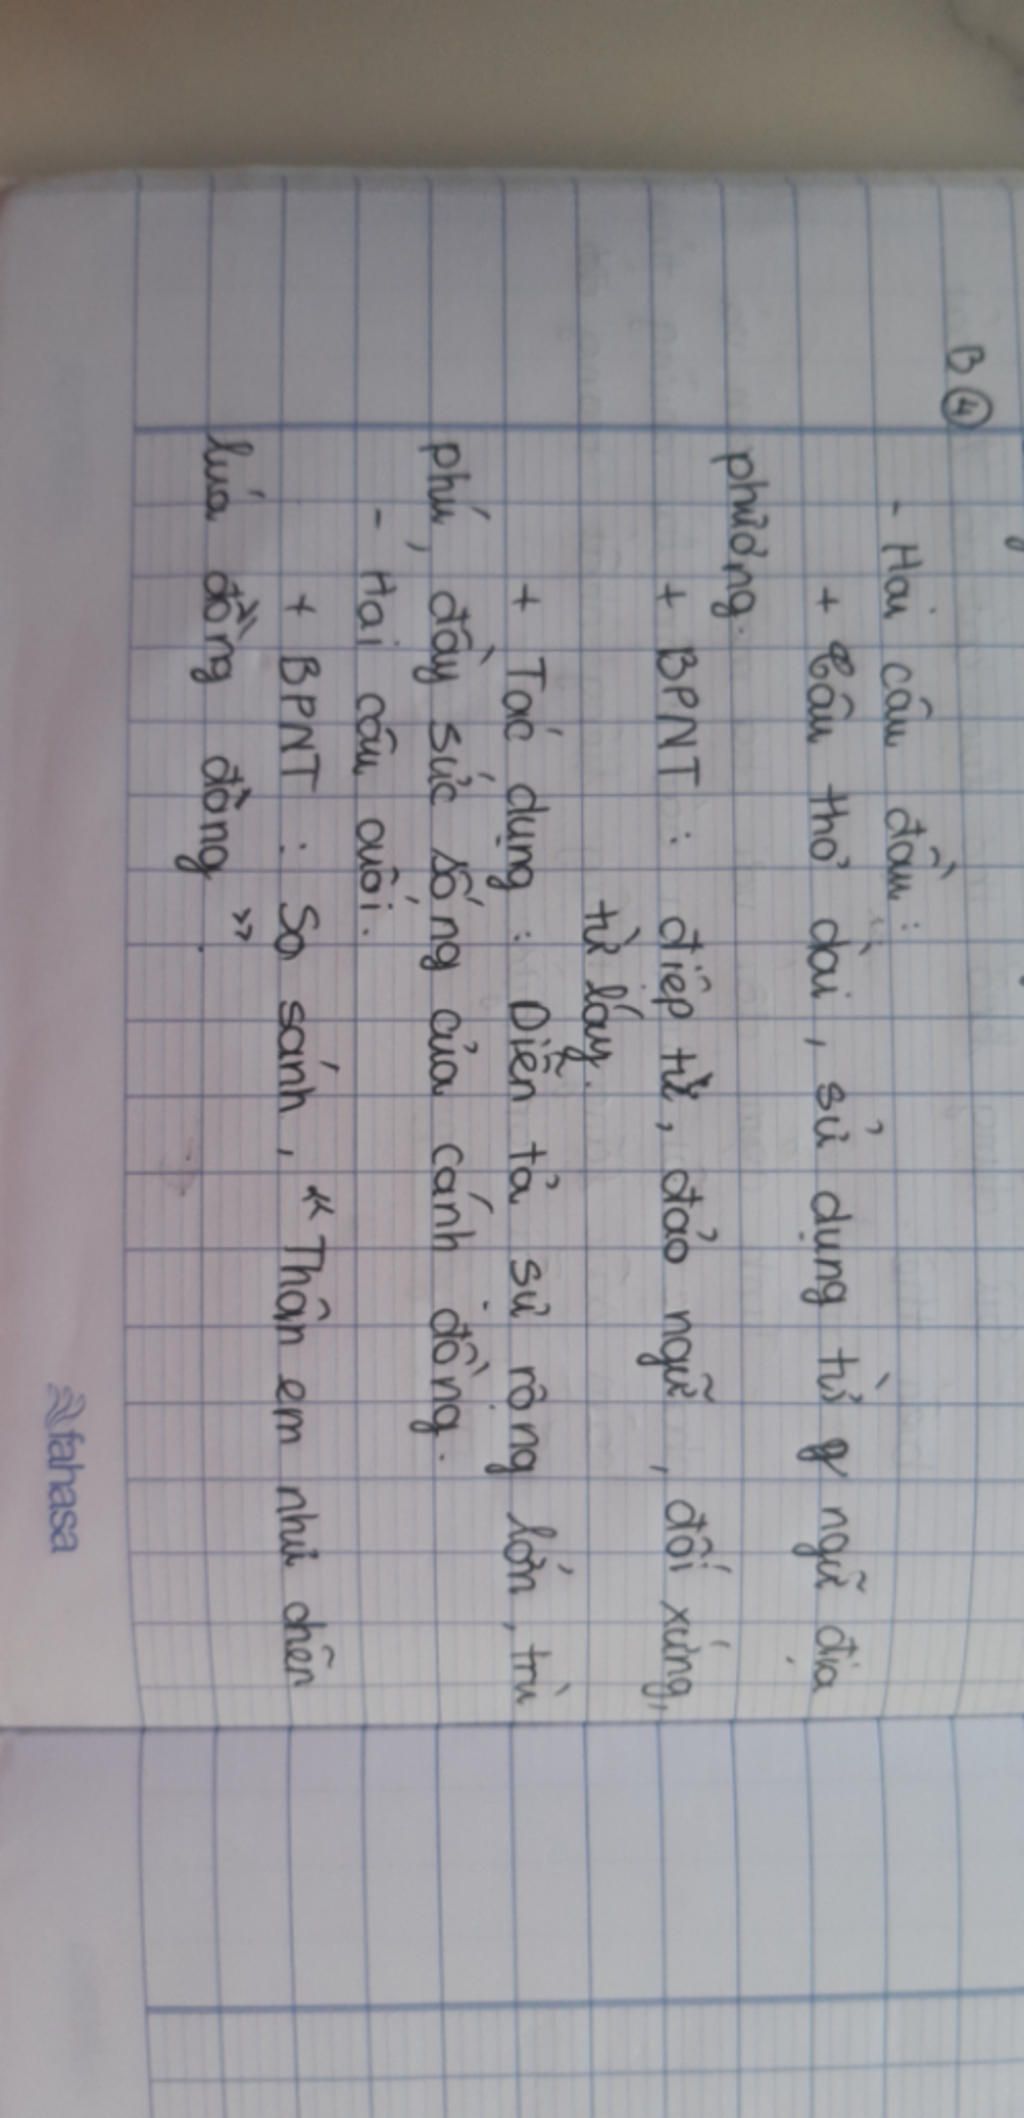 B ④
- Hai câu đầu :
+ Câu thơ dài, sử dụng từ ngữ địa
phương.
+ BPNT : điệp từ, đảo ngữ, đối xứng,
từ láy.
+ Tác dụng : Diễn tả sự rộng lớn, trù
phú, đầy sức sống của cánh đồng.
- Hai câu cuối.
+ BPNT : So sánh, "Thân em như chẽn
lúa đồng đòng".
fahasa